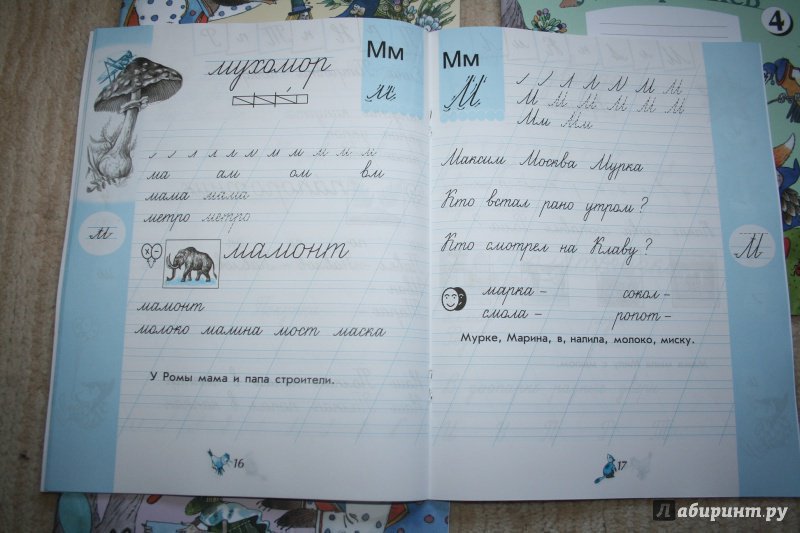 4
Мм
мухомор
м
ма ам ом вм
мама мама
метро метро
м
мамонт
мамонт
молоко малина мост маска
У Ромы мама и папа строители.
16
Мм
М
М М М М М М
Мм Мм
Максим Москва Мурка
Кто встал рано утром?
Кто смотрел на Клаву?
М
марка – сокол –
смола – ропот –
Мурке, Марина, в, налила, молоко, миску.
17
Лабиринт.ру